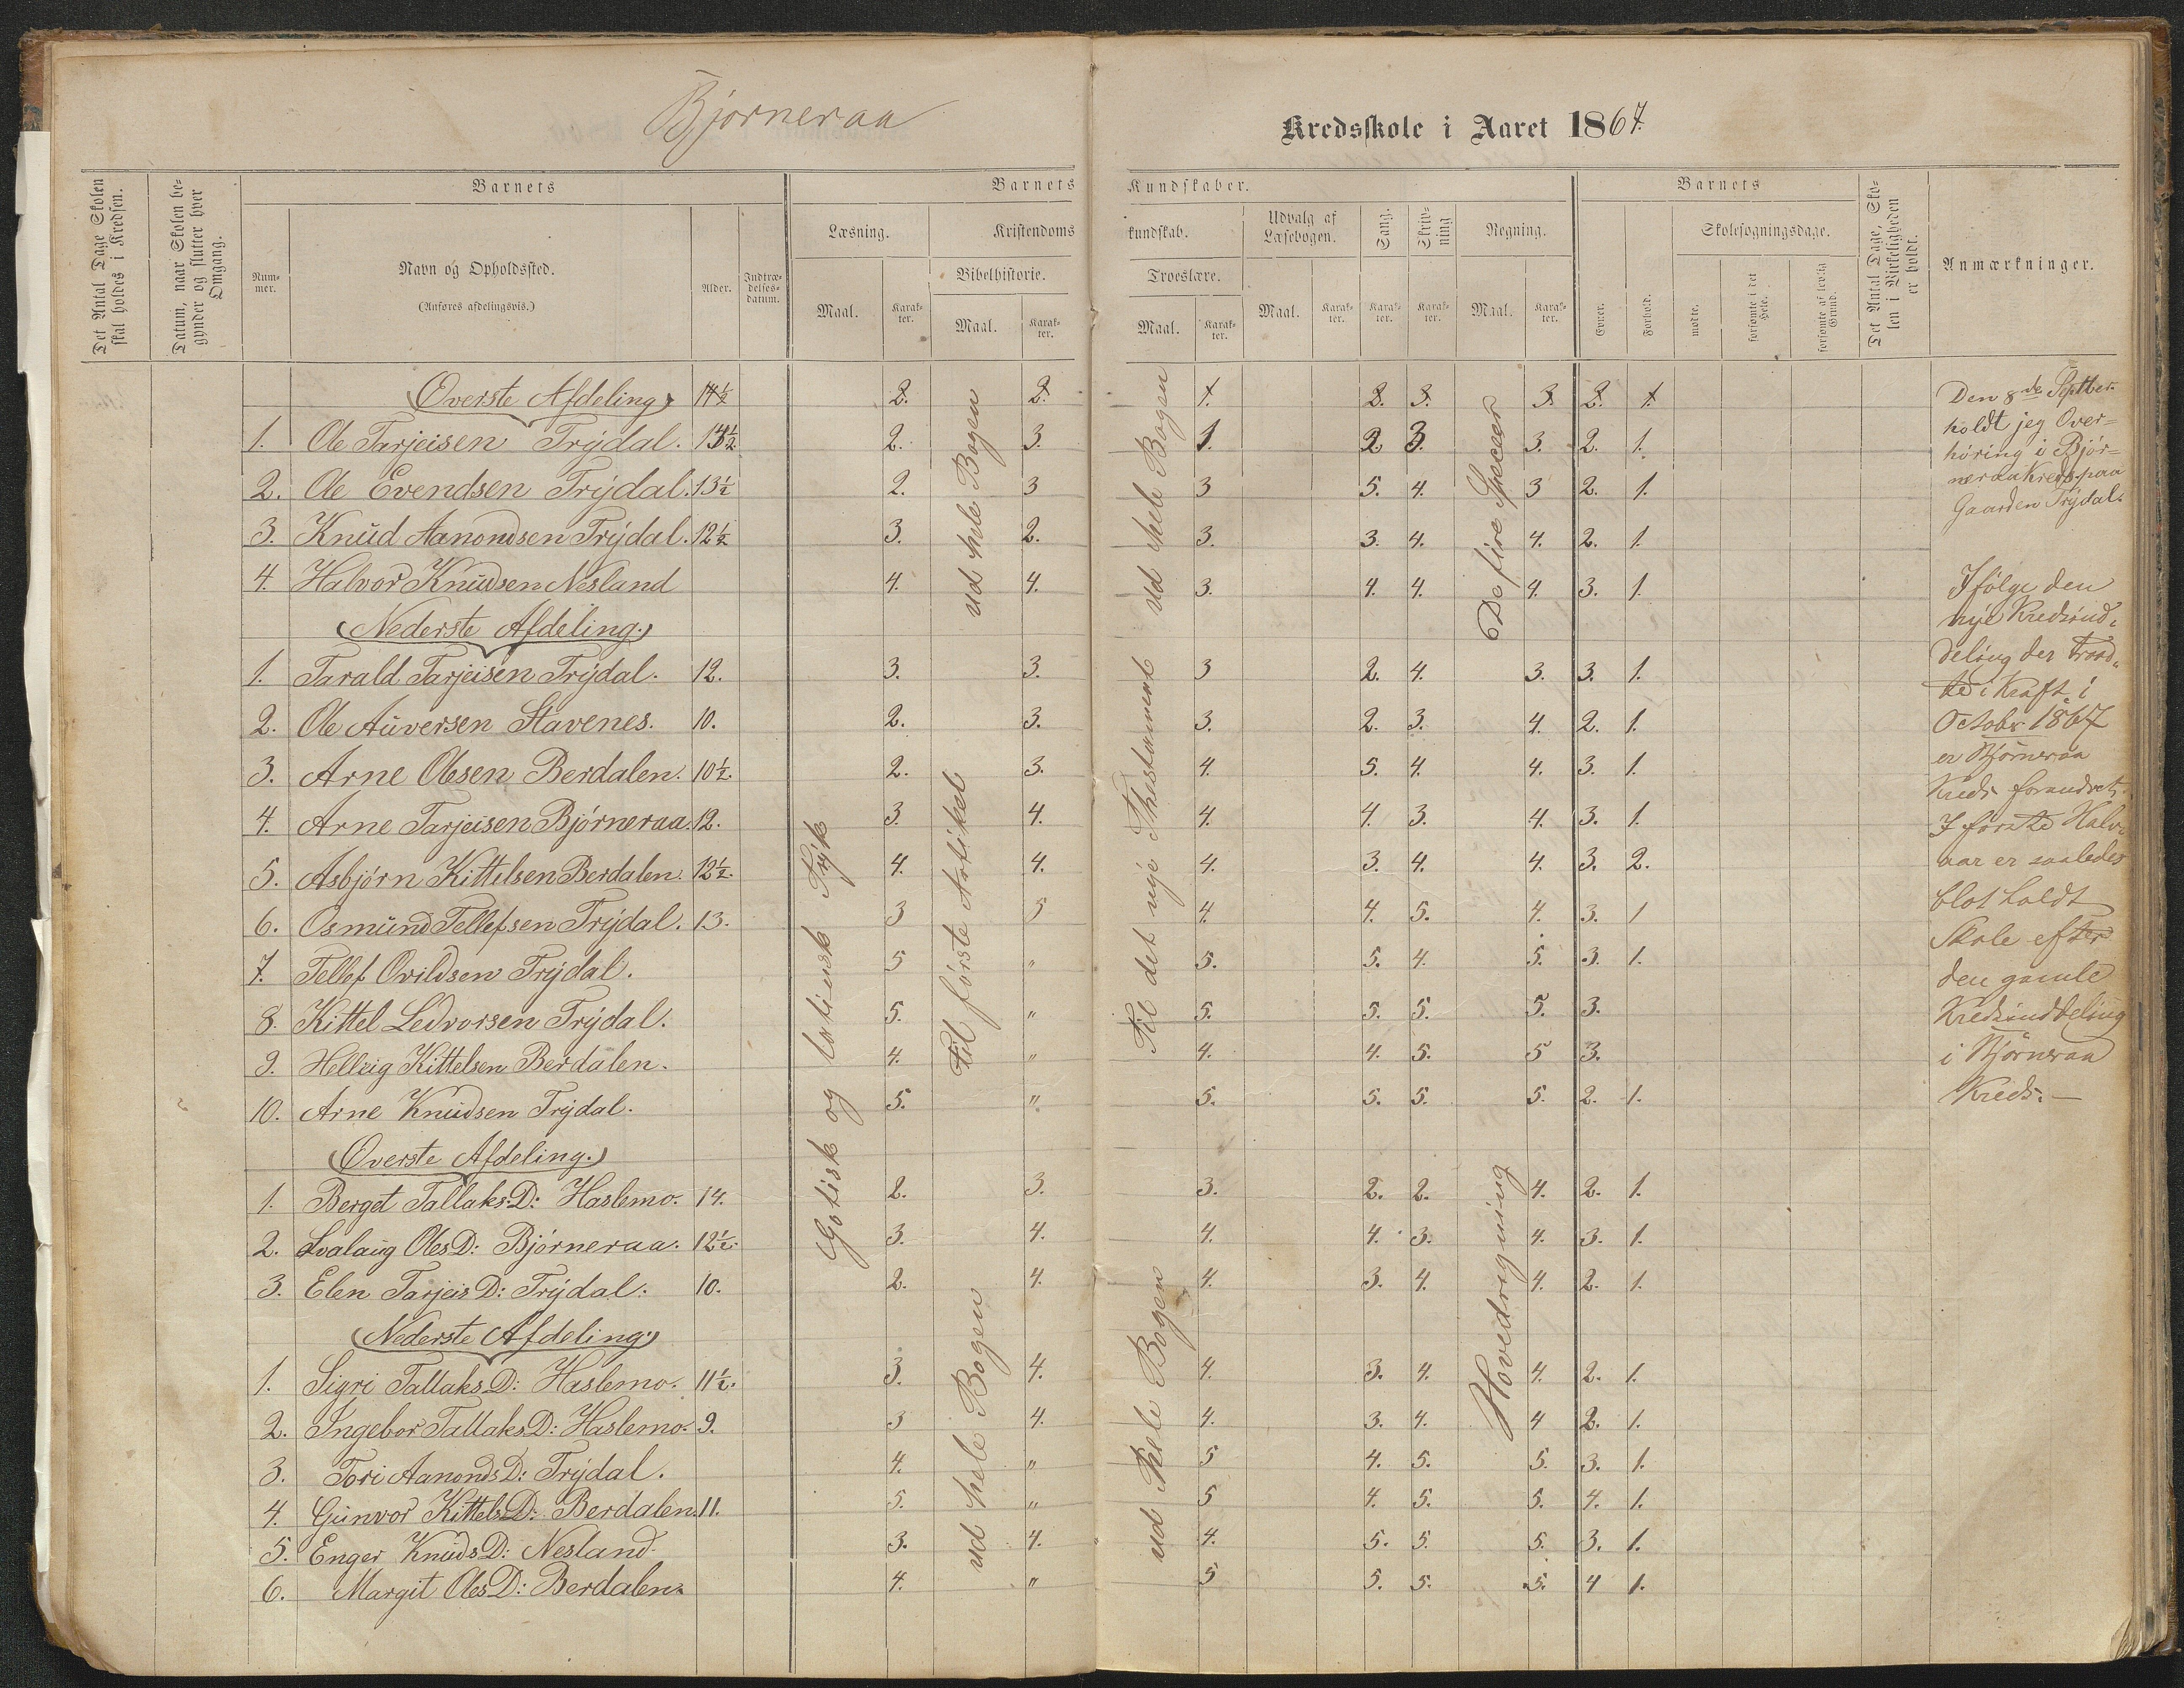 Bjorneraa
Kredsskole i Aaret 1867.
Det Antal Dage Skolen skal holdes i Kredsen.
Datum, naar Skolen begynder og slutter hver Omgang.
Barnets
Nummer.
Navn og Opholdssted.
(Anføres afdelingsvis.)
Alder.
Indtrædelsesdatum.
Barnets Kundskaber.
Læsning.
Maal.
Karakter.
Kristendomskundskab.
Bibelhistorie.
Maal.
Karakter.
Troeslære.
Maal.
Karakter.
Udvalg af Læsebogen.
Maal.
Karakter.
Sang.
Karakter.
Skrivning
Karakter.
Regning.
Maal.
Karakter.
Barnets
Evner.
Forhold.
Skolesøgningsdage.
mødte.
forsømte i det Hele.
forsømte af lovlig Grund.
Det Antal Dage, Skolen i Virkeligheden er holdt.
Anmærkninger.
Øverste Afdeling 14½ 2. 2. 1. 2. 3. 3. 2. 1.
1. Ole Tarjeisen Trýdal. 13½ 2. 3. 1. 2 3. 3. 2. 1.
2. Ole Evendsen Trýdal. 13½ 2. 3 3 5. 4. 3 2. 1.
3. Knud Aanondsen Trýdal. 12½ 3. 2. 3. 3. 4. 4. 2. 1.
4. Halvor Knudsen Nesland 4. 4. 3. 4. 4. 4. 3. 1.
Nederste Afdeling.
1. Tarald Tarjeisen Trýdal. 12. 3. 3. 3 2. 4. 3. 3. 1.
2. Ole Auversen Stavenes. 10. 2. 3. 3. 2. 3. 4. 2. 1.
3. Arne Olesen Berdalen. 10½. 2. 3. 4. 5. 4. 4. 3. 1.
4. Arne Tarjeisen Bjórneraa. 12. 3. 4. 4. 4. 3. 4. 3. 1.
5. Asbjórn Kittilsen Berdalen. 12½. 4. 4. 4. 3. 4. 4. 3. 2.
6. Osmund Tellefsen Trýdal. 13. 3 5 4. 4. 5. 4. 3. 1
7. Tellef Ovildsen Trýdal. 5 " 5. 5. 4. 5. 3. 1.
8. Kittel Ledvorsen Trýdal. 5. " 5. 5. 5. 5. 3.
9. Hellrig Kittelsen Berdalen. 4. " 4. 4. 5. 5 3.
10. Arne Knudsen Trýdal. 5. " 5. 5. 5. 5. 2. 1.
Øverste Afdeling.
1. Berget Tallaks D: Haslemo. 14. 2. 3. 3. 2. 2. 4. 2. 1.
2. Svalaug Oles D: Bjórneraa. 12½. 3. 4. 4. 4. 3. 4. 3. 1.
3. Elen Tarjeis D: Trýdal. 10. 2. 4. 4. 3. 4. 4. 2. 1.
Nederste Afdeling
1. Sigri Tallaks D: Haslemo. 11½. 3. 4. 4. 3. 4. 4. 2. 1.
2. Ingebor Tallaks D: Haslemo. 9. 3 4. 4. 3. 4. 4 2. 1.
3. Tori Aanonds D: Trýdal. 4. " 5 4. 5. 5. 3. 1.
4. Gunvor Kittels D: Berdalen. 11. 5. " 5 4. 5. 5. 4. 1.
5. Enger Knuds D: Nesland. 3. 4. 4. 5. 5. 5. 3. 1.
6. Margit Oles D: Berdalen. 4. " 5 5. 5. 5. 4 1.
Gotisk og latinsk Trýk
ud hele Bogen
til fórste Artikel
ud hele Bogen
ud hele Bogen
Til det nýe Thestament
ud Hele Bogen
De fire Specier
Hovedregning
Den 8de Septber.
holdt jeg Over=
hóring i Bjór=
neraa Kreds paa
Gaarden Trýdal.
Ifólge den
nye Kredsind-
deling der traad-
te i Kraft i
October 1867
er Bjórneraa
Kreds forandret.
I fórste Halv-
aar er saaledes
blot holdt
Skole efter
den gamle
Kredsinddeling
i Bjórneraa
Kreds. —